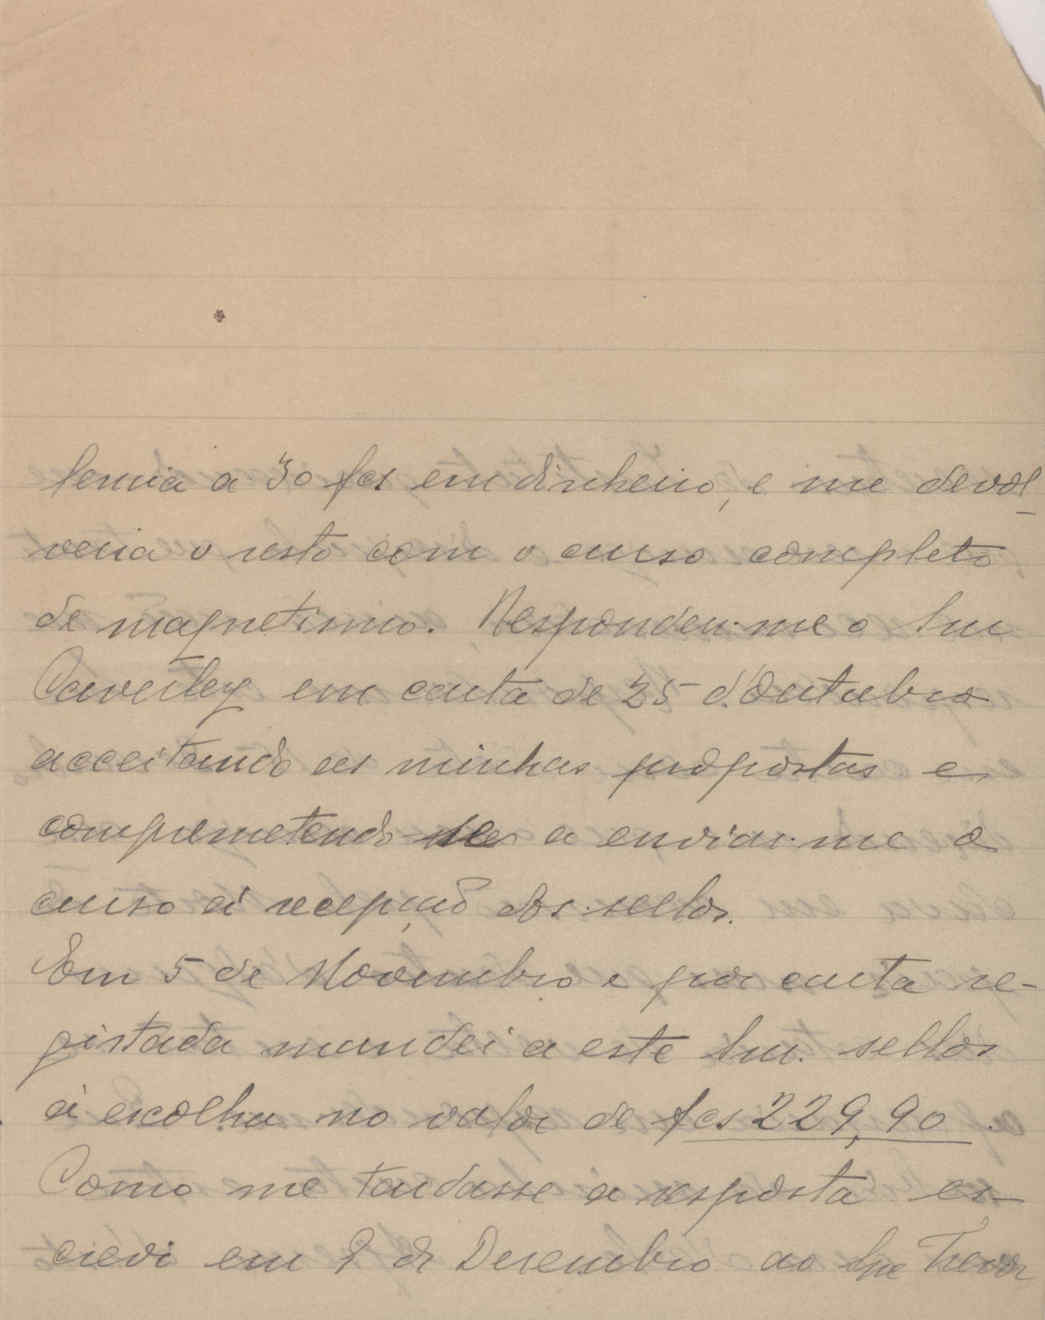 a 30 fcs em dinheiro, e me devol-
veria o resto com o curso completo
de magnetismo. Respondeu-me o Snr
em carta de 25 d'Outubro
acceitando as minhas propostas e
comprometendo-se a enviar-me o
curso á recepção dos sellos.
Em 5 de Novembro e por carta re-
gistada mandei a este Snr. sellos
á escolha no valor de fcs 229,90.
Como me tardasse a resposta es-
crevi em 9 de Desembro ao Snr